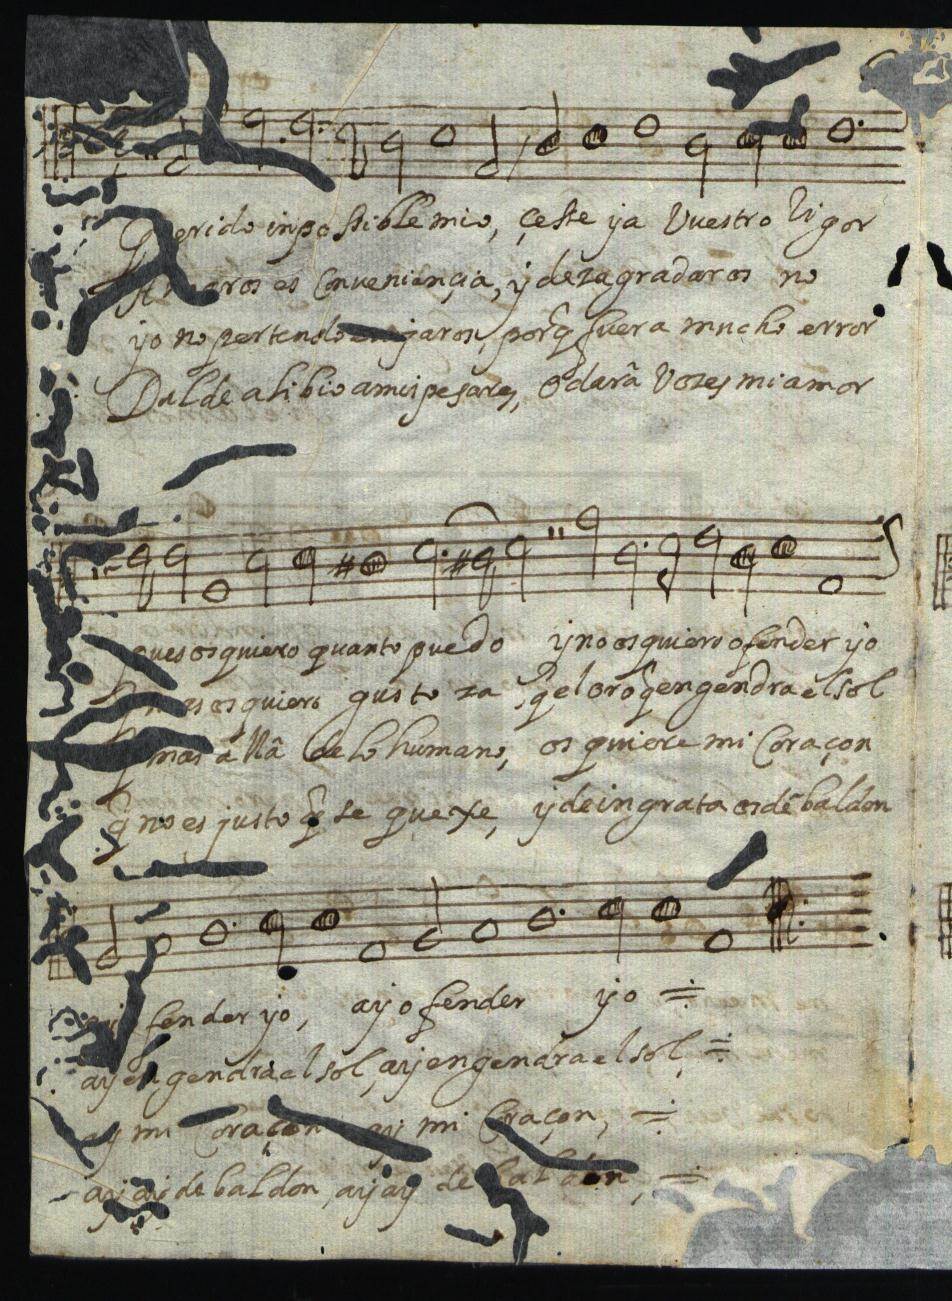 Querido inpossible mio, çeste ya Vuestro Rigor
es Conveniançia, y dezagradaros no
yo no pertendo enojaros, porq̃ fuera mucho error
Dalde alibio a mis pesares, o darâ Vozes mi amor
pues os quiero quanto puedo y no os quiero ofender yo
os quiero gusto za q̃ el oro q̃ engendra el sol
q̃ mas a llâ de lo humano, os quiere mi Coraçon
q̃ no es justo q̃ se quexe, y de ingrata os dê baldon
ay fender yo, ay ofender yo
ay engendra el sol, ay engendra el sol,
ay mi Coraçon ay mi Coraçon,
ay ay de baldon, ay ay de baldon,